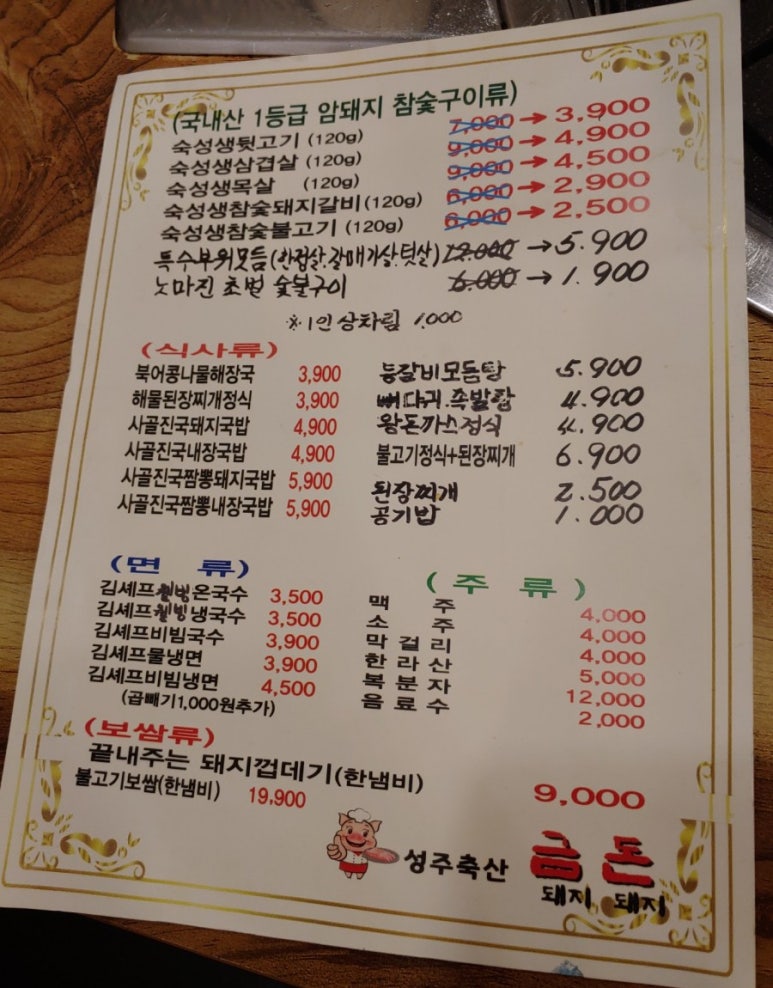 (국내산 1등급 암돼지 참숯구이류)
숙성생뒷고기 (120g) 7,000 → 3,900
숙성생삼겹살 (120g) 9,000 → 4,900
숙성생목살 (120g) 9,000 → 4,500
숙성생참숯돼지갈비 (120g) 6,000 → 2,900
숙성생참숯불고기 (120g) 6,000 → 2,500
특수부위모듬 (항정살.갈매기살.덧살) 12.000 → 5.900
노마진 초벌 숯불구이 6.000 → 1.900
※ 1인 상차림 1.000
(식사류)
북어콩나물해장국 3,900
해물된장찌개정식 3,900
사골진국돼지국밥 4,900
사골진국내장국밥 4,900
사골진국짬뽕돼지국밥 5,900
사골진국짬뽕내장국밥 5,900
등갈비모듬탕 5.900
뼈다귀.족발탕 4.900
왕돈까스정식 4.900
불고기정식+된장찌개 6.900
된장찌개 2.500
공기밥 1.000
(면 류)
김셰프웰빙온국수 3,500
김셰프웰빙냉국수 3,500
김셰프비빔국수 3,900
김셰프물냉면 3,900
김셰프비빔냉면 4,500
(곱빼기1,000원추가)
(주 류)
맥 주 4,000
소 주 4,000
막걸리 4,000
한라산 5,000
복분자 12,000
음료수 2,000
(보쌈류)
끝내주는 돼지껍데기(한냄비) 9,000
불고기보쌈(한냄비) 19,900
성주축산 금돈
돼지 돼지